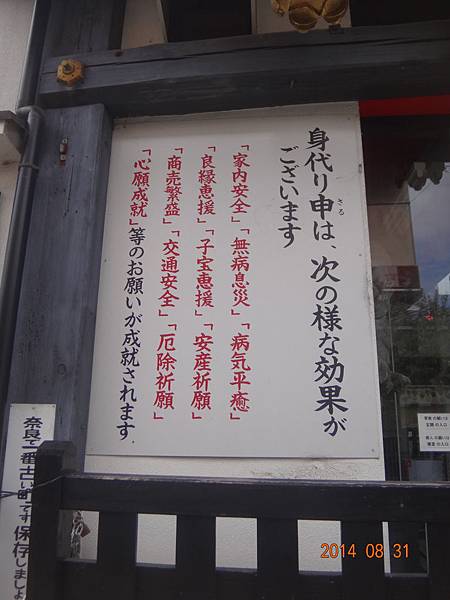 身代り申は、次の様な効果が
さる
ございます
「家内安全」「無病息災」「病気平癒」
「良縁恵援」「子宝恵援」「安産祈願」
「商売繁盛」「交通安全」「厄除祈願」
「心願成就」等のお願いが成就されます.
奈良で一番古い町です保存しましょ
2014 08 31